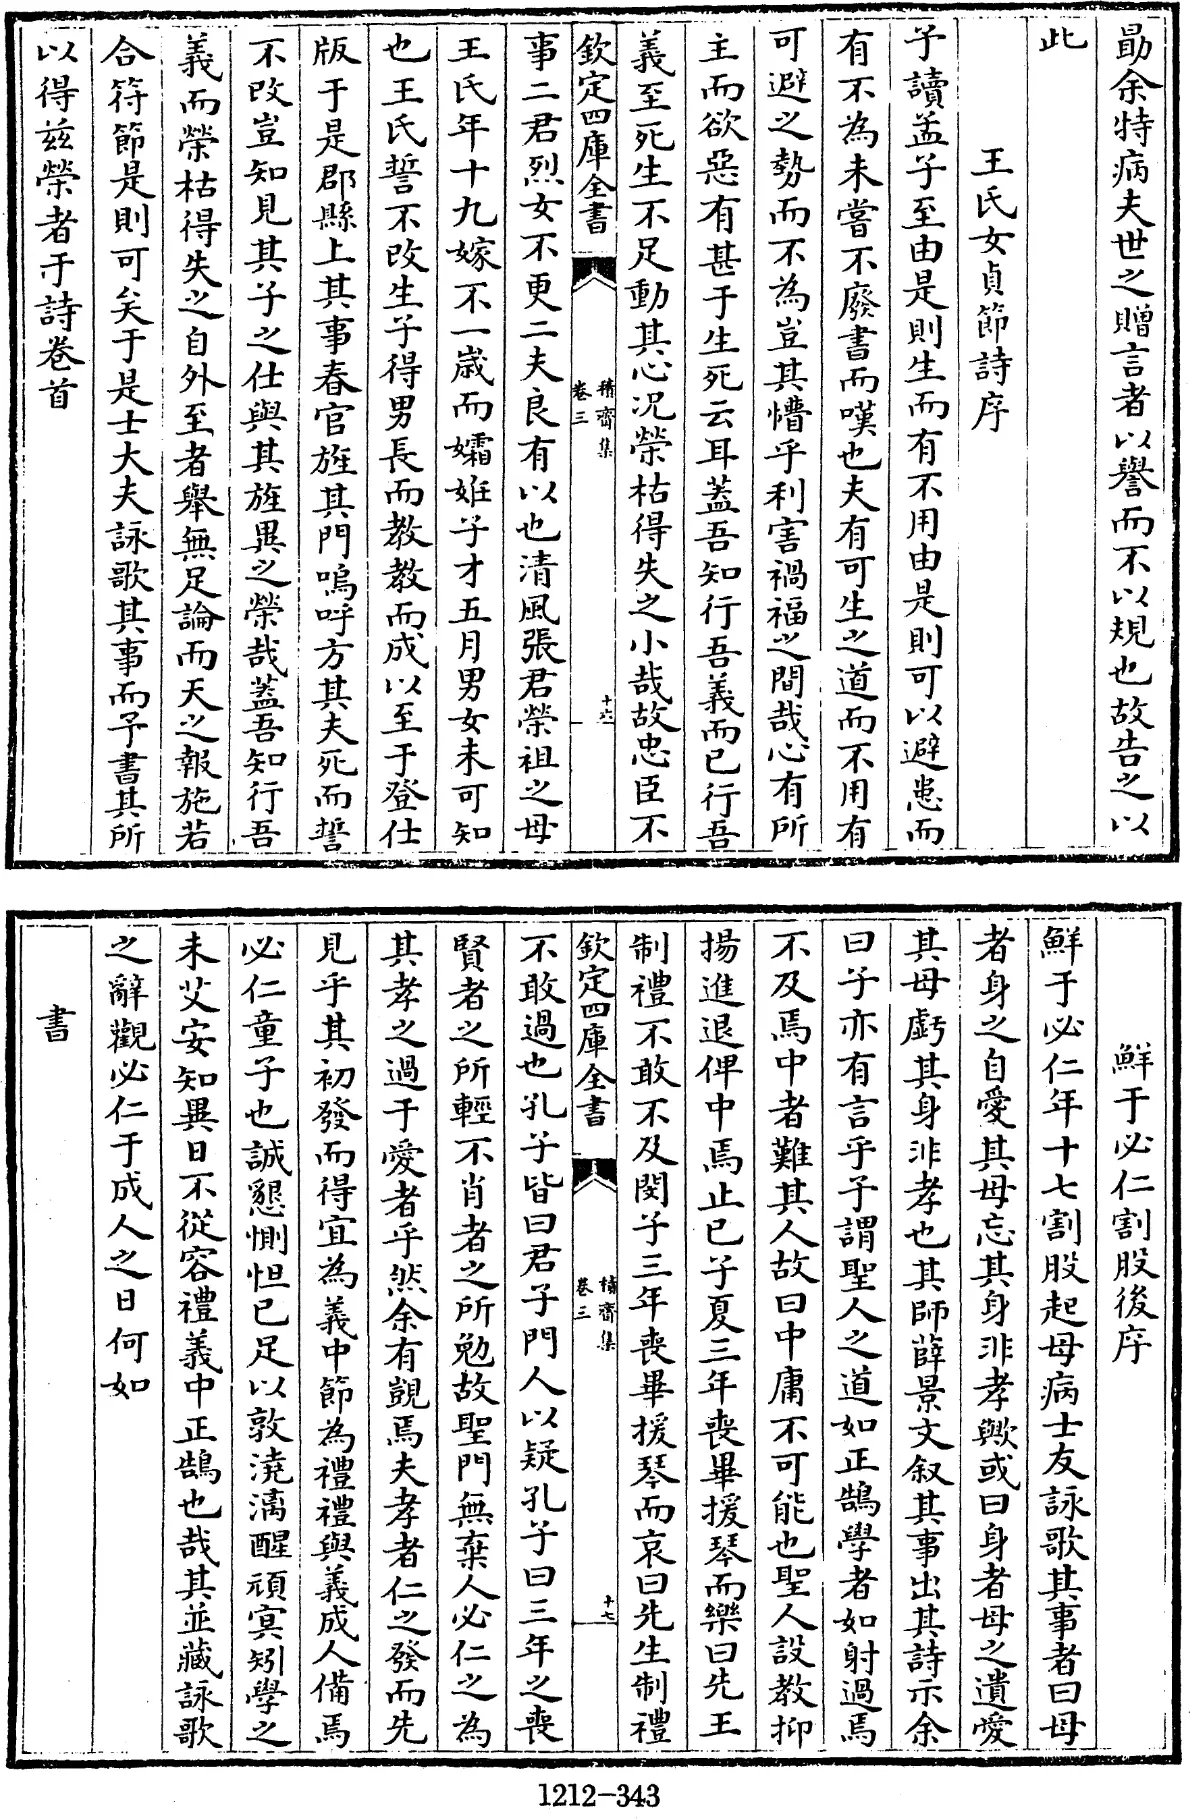 勗余特病夫世之贈言者以譽而不以規也故告之以
此
王氏女貞節詩序
予讀孟子至由是則生而有不用由是則可以避患而
有不為未嘗不廢書而嘆也夫有可生之道而不用有
可避之勢而不為豈其懵乎利害禍福之間哉心有所
主而欲惡有甚于生死云耳蓋吾知行吾義而已行吾
義至死生不足動其心况榮枯得失之小哉故忠臣不
欽定四庫全書
積齋集
卷三
十六
事二君烈女不更二夫良有以也清風張君榮祖之母
王氏年十九嫁不一歲而孀姙子才五月男女未可知
也王氏誓不改生子得男長而教教而成以至于登仕
版于是郡縣上其事春官旌其門嗚呼方其夫死而誓
不改豈知見其子之仕與其旌異之榮哉蓋吾知行吾
義而榮枯得失之自外至者舉無足論而天之報施若
合符節是則可矣于是士大夫詠歌其事而予書其所
以得兹榮者于詩卷首
鮮于必仁割股後序
鮮于必仁年十七割股起母病士友詠歌其事者曰母
者身之自愛其母忘其身非孝歟或曰身者母之遺愛
其母虧其身非孝也其師薛景文叙其事出其詩示余
曰子亦有言乎予謂聖人之道如正鵠學者如射過焉
不及焉中者難其人故曰中庸不可能也聖人設教抑
揚進退俾中焉止已子夏三年喪畢援琴而樂曰先王
制禮不敢不及閔子三年喪畢援琴而哀曰先生制禮
欽定四庫全書
積齋集
卷三
十七
不敢過也孔子皆曰君子門人以疑孔子曰三年之喪
賢者之所輕不肖者之所勉故聖門無棄人必仁之為
其孝之過于愛者乎然余有覬焉夫孝者仁之發而先
見乎其初發而得宜為義中節為禮禮與義成人備焉
必仁童子也誠懇惻怛已足以敦澆漓醒頑冥矧學之
未艾安知異日不從容禮義中正鵠也哉其並藏詠歌
之辭觀必仁于成人之日何如
書
1212-343